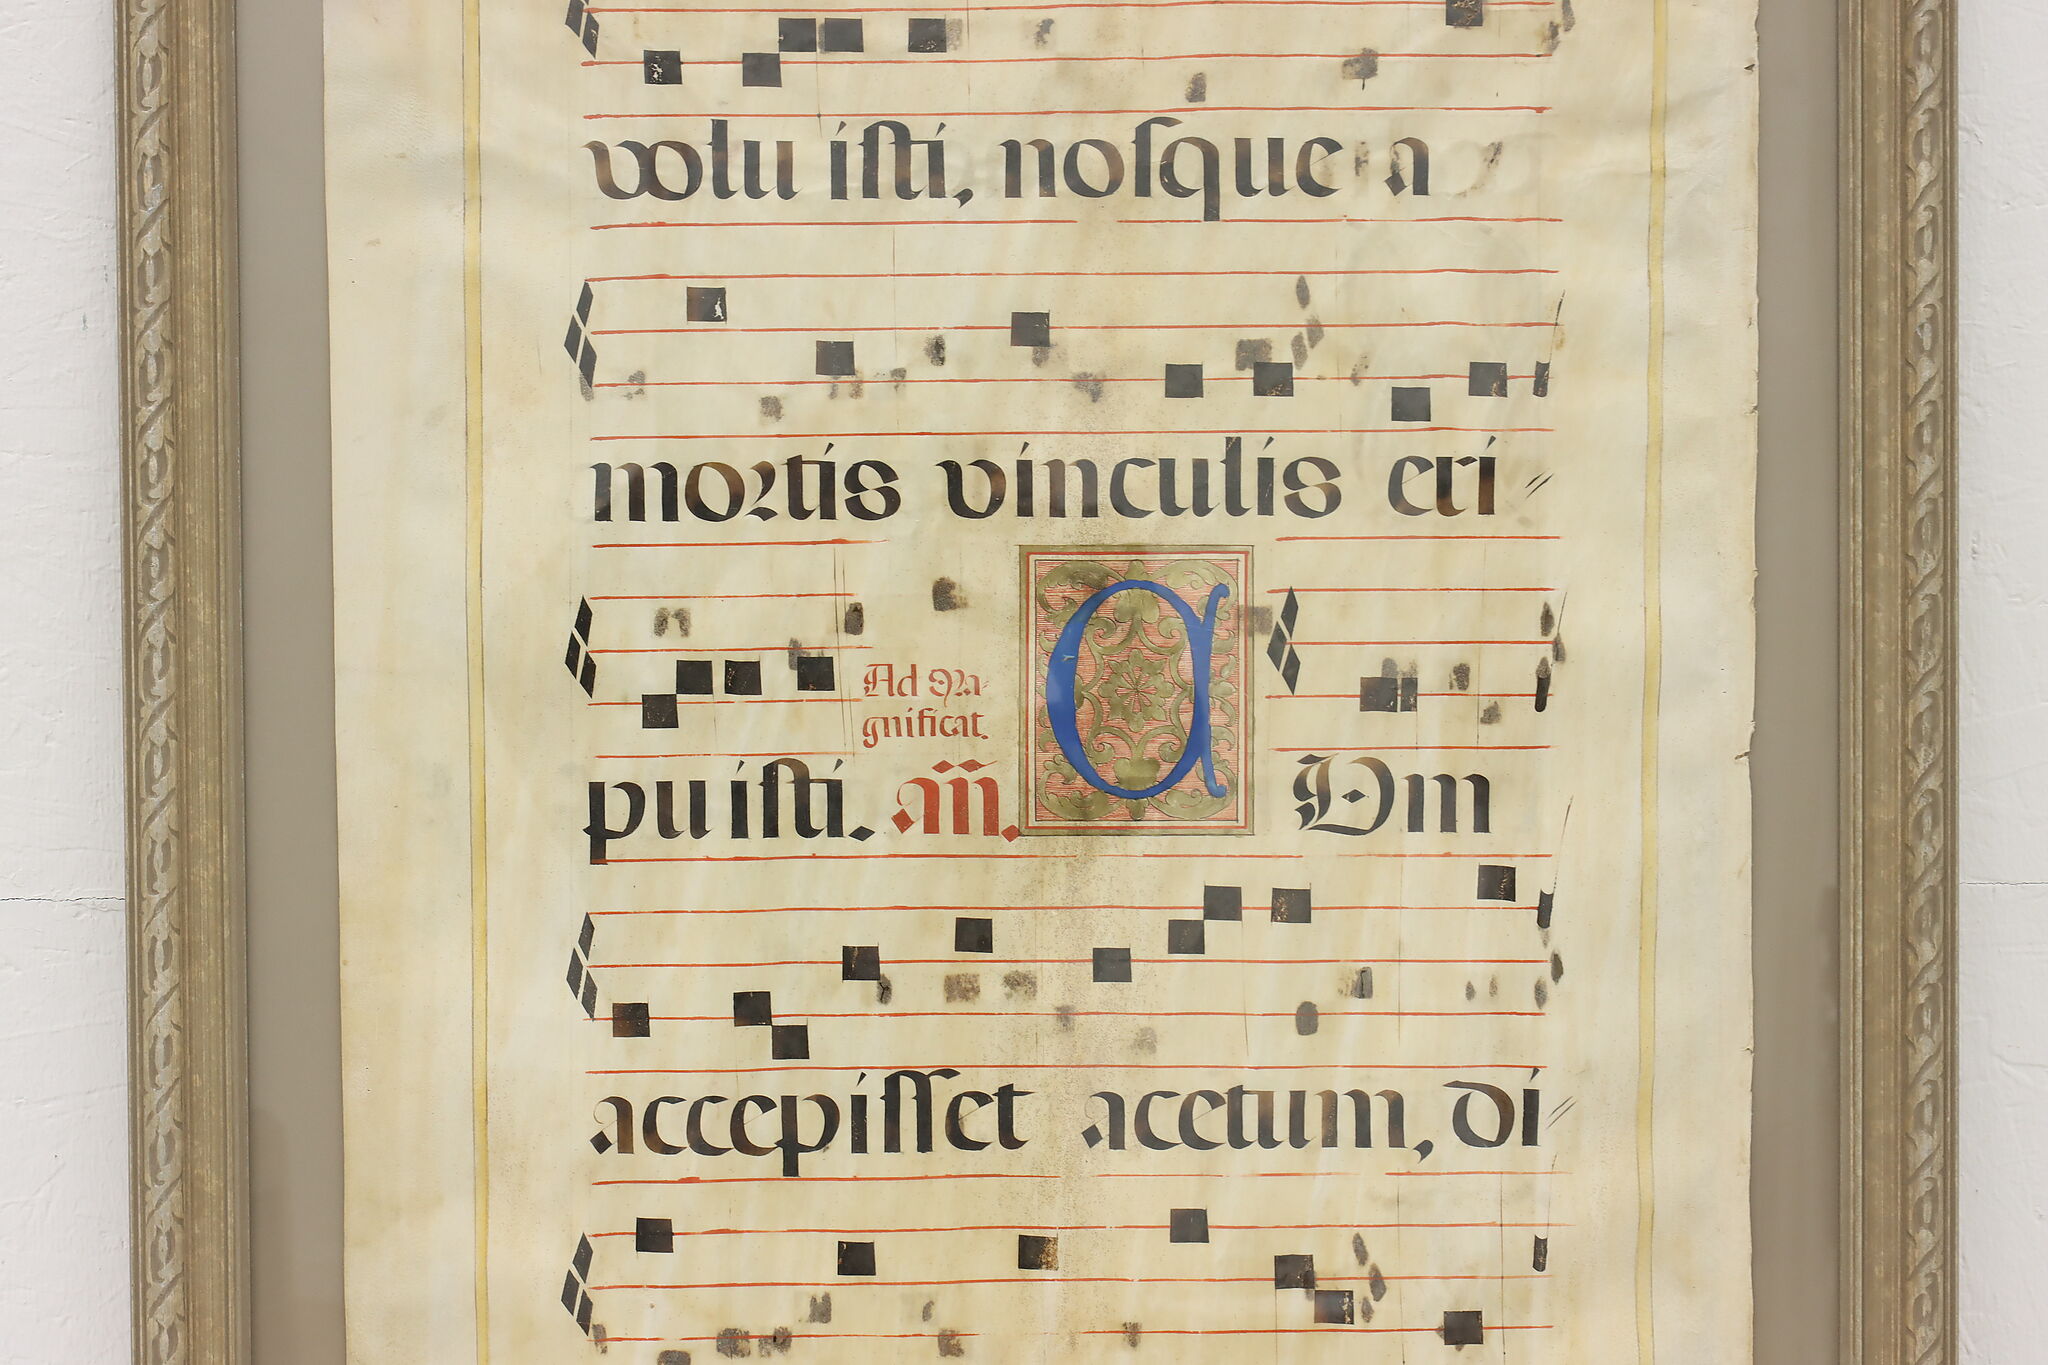 volu isti, nosque a
mortis vinculis eri-
puisti.
Ad Ma-
gnificat.
añ.
C Vm
accepisset acetum, di-